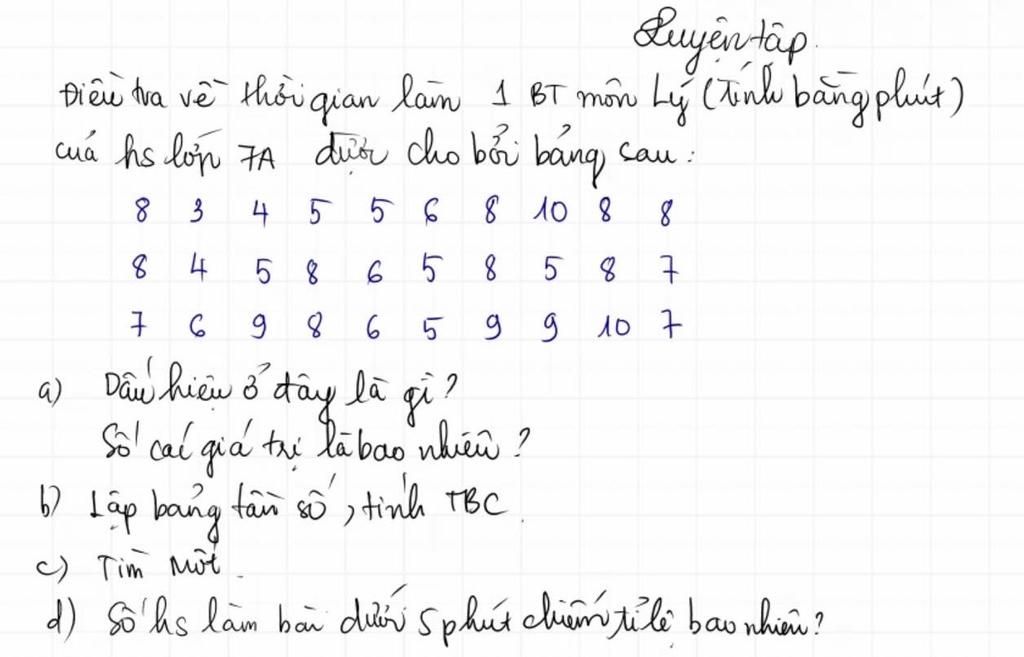 Luyện tập.
Điều tra về thời gian làm 1 BT môn Lý (Tính bằng phút)
của hs lớp 7A được cho bởi bảng sau:
8 3 4 5 5 6 8 10 8 8
8 4 5 8 6 5 8 5 8 7
7 6 9 8 6 5 9 9 10 7
a) Dấu hiệu ở đây là gì?
Số các giá trị là bao nhiêu?
b) Lập bảng tần số, tính TBC.
c) Tìm Mốt.
d) Số hs làm bài dưới 5 phút chiếm tỉ lệ bao nhiêu?